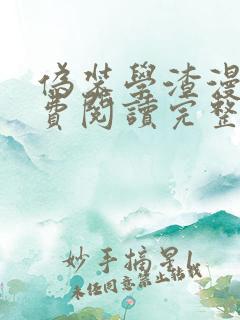 偽裝學渣漫
費閱讀完整
妙手摘星1
未经同意禁止转载